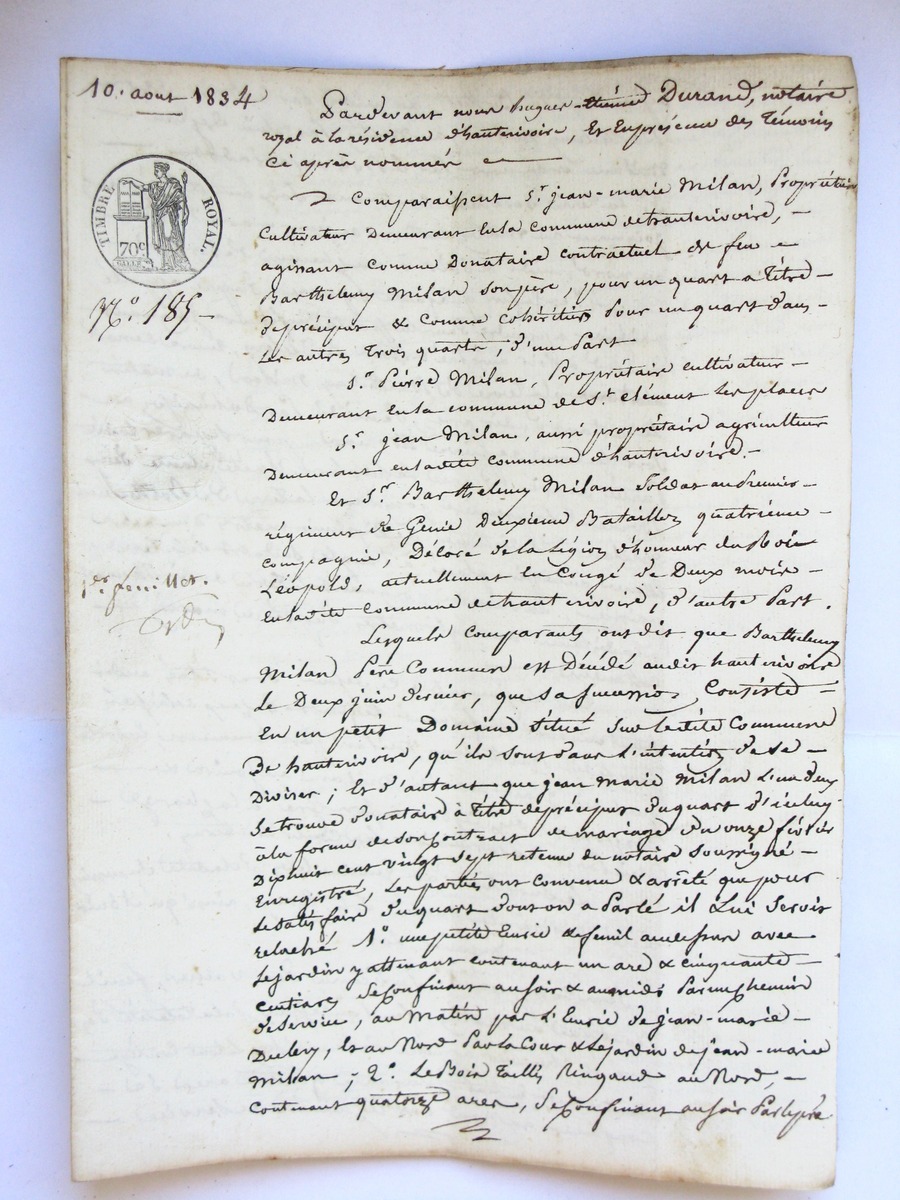 10. aout 1834
Pardevant nous hugues-étiéne Durand, notaire
royal à la résidence d'hauterivoire, Et En présence des Témoins
Ci après nommés
TIMBRE ROYAL.
70c
Comparaissent Sr. jean-marie Milan, Propriétaire
Cultivateur Demeurant En la commune de hauterivoire, –
agissant comme Donataire contractuel de feu
Barthelemy Milan son père, pour un quart à Titre –
N.º 185 –
de préciput & comme cohéritier Pour un quart dans –
Les autres Trois quarts, d'une Part
Sr. Pierre Milan, Propriétaire cultivateur –
Demeurant En la commune de St. clément Les places
Sr. jean Milan, aussi propriétaire agriculteur
Demeurant en ladite commune d'hauterivoire. –
Et Sr. Barthelemy Milan Soldat au Premier –
régiment de Génie Deuxieme Bataillon quatrieme –
compagnie, Décoré de la Légion d'honneur du Roi
Léopold, actuellement En Congé de Deux mois –
1er. feuillet.
En ladite Commune de hauterivoire, d'autre Part.
Lesquels comparants ont dit que Barthelemy
Milan Père Commun est Décédé audit hauterivoire
Le Deux juin dernier, que sa succession Consiste –
En un petit Domaine situé sur ladite Commune
De hauterivoire, qu'ils sont dans L'intention de se –
Diviser ; Et d'autant que jean Marie Milan L'un d'eux
Se trouve donataire à Titre de préciput du quart d'icelui
à la forme de son contract de mariage du onze février
Dix huit cent vingt sept retenu du notaire soussigné –
Enregistré, Les parties ont convenu & arrêté que pour
Le satisfaire du quart dont on a Parlé il Lui seroit
relaché 1.º une petite Eurie & fenil au dessus avec
Le jardin y attenant contenant un are & cinquante
centiares se confinant au soir & au midi Par un chemin
de service, au Matin par L'Eurie de jean-marie –
, Et au Nord Par La Cour & Le jardin de jean-marie
Milan ; 2.º Le Bois Taillis Ringaud au Nord, –
contenant quatorze ares, Se confinant au soir Par le pré